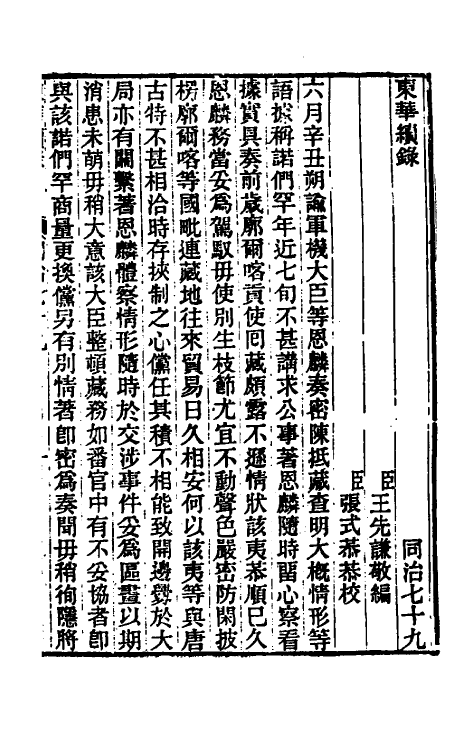 東華續錄　同治七十九
臣王先謙敬編
臣張式恭恭校
六月辛丑朔諭軍機大臣等恩麟奏密陳抵藏查明大概情形等
語據稱諾們罕年近七旬不甚講求公事著恩麟隨時留心察看
據實具奏前歲廓爾喀貢使回藏頗露不遜情狀該夷恭順已久
恩麟務當妥爲駕馭毋使別生枝節尤宜不動聲色嚴密防閑披
楞廓爾喀等國毗連藏地往來貿易日久相安何以該夷等與唐
古特不甚相洽時存挾制之心儻任其積不相能致開邊釁於大
局亦有關繫著恩麟體察情形隨時於交涉事件妥爲區畫以期
消患未萌毋稍大意該大臣整頓藏務如番官中有不妥協者卽
與該諾們罕商量更換儻另有別情著卽密爲奏聞毋稍徇隱將